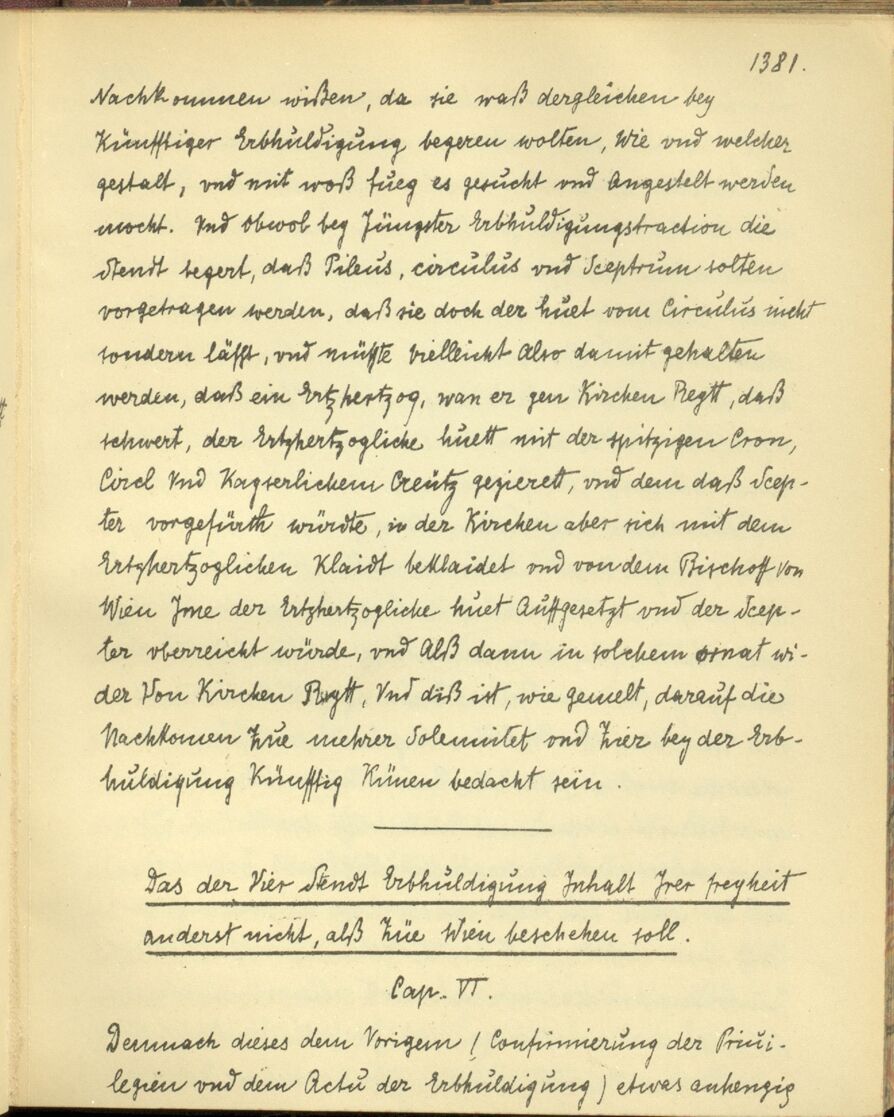 1381.
Nachkommen wißen, da sie waß dergleichen bey
Künfftiger Erbhuldigung begeren wolten, Wie vnd welcher
gestalt, vnd mit woß fueg es gesucht vnd Angestelt werden
mocht. Vnd Obwol bey Jüngster Erbhuldigungstraction die
Stendt begert, daß Pileus, circulus vnd Sceptrum solten
vorgetragen werden, daß sie doch der huet vom Circulus nicht
sondern läfft, vnd müßte vielleicht Also damit gehalten
werden, daß ein Ertzhertzog, wan er gen Kirchen Reytt, daß
schwert, der Ertzhertzogliche huett mit der spitzigen Cron,
Circl Vnd Kayserlichem Creütz gezierett, vnd dem daß Scep-
ter vorgefürth würdte, in der Kirchen aber sich mit dem
Ertzhertzoglichen Klaidt beklaidet vnd von dem Bischoff von
Wien Jme der Ertzhertzogliche huet Auffgesetzt vnd der Scep-
ter vberreicht würde, vnd Alß dann in solchem ornat wi-
der Von Kirchen Reytt, Vnd diß ist, wie gemelt, darauf die
Nachkomen Zue mehrer Solemnitet vnd Zier bey der Erb-
huldigung Künfftig Künen bedacht sein.
Das der Vier Stendt Erbhuldigung Inhalt Jrer freyheit
anderst nicht, alß Züe Wien beschehen soll.
Cap. VI.
Demnach dieses dem Vorigem (Confirmierung der Priui-
legien vnd dem Actu der Erbhuldigung) etwas anhengig